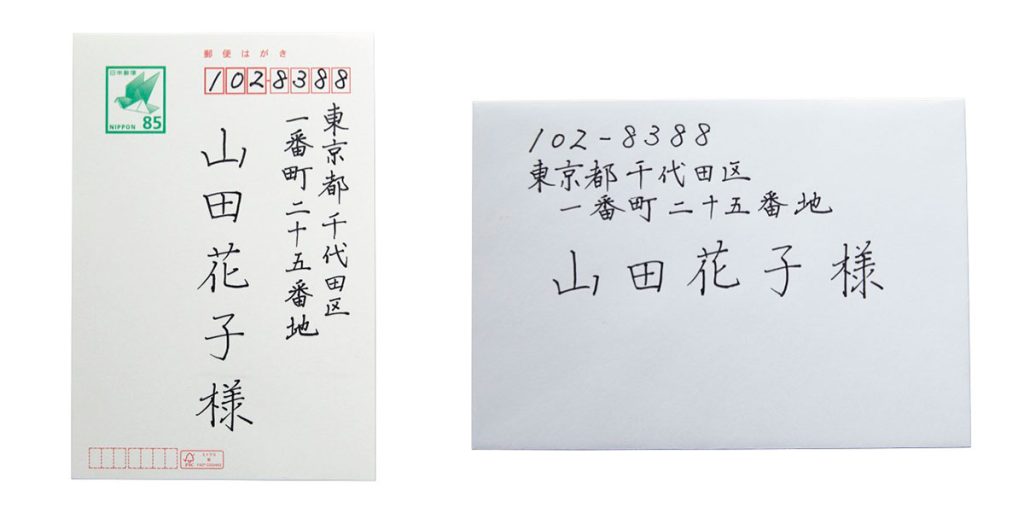 郵便はがき
日本郵便
NIPPON 85
102-8388
東京都千代田区
一番町二十五番地
山田花子様
102-8388
東京都千代田区
一番町二十五番地
山田花子様